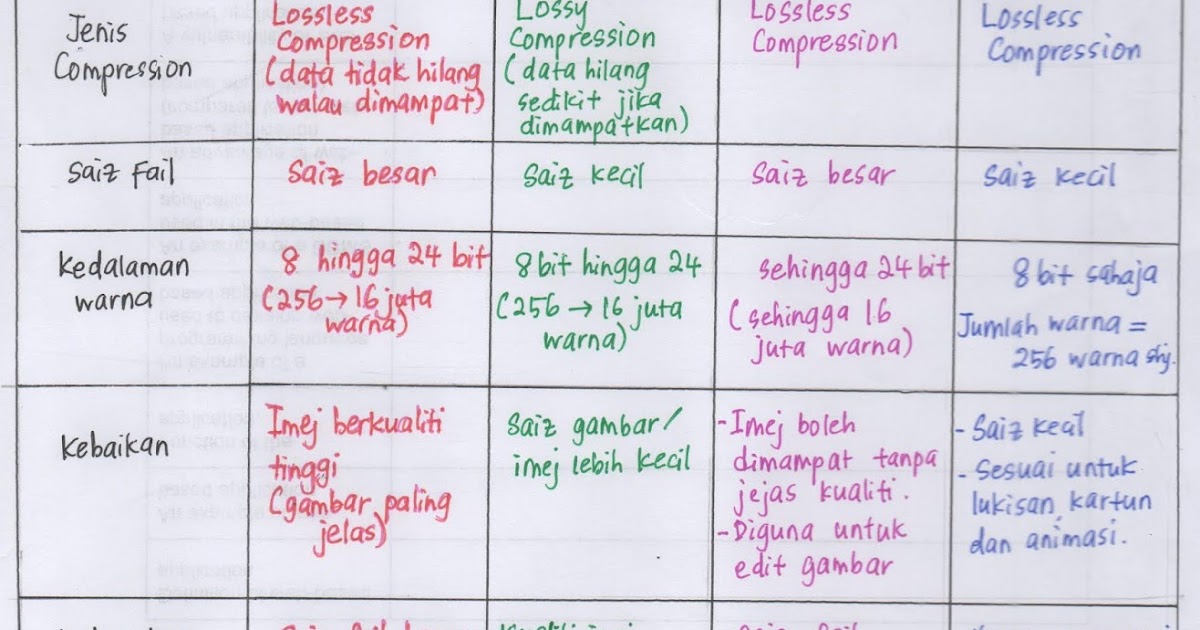 Jenis
Compression
Lossless
Compression
(data tidak hilang
walau dimampat)
Lossy
Compression
(data hilang
sedikit jika
dimampatkan)
Lossless
Compression
Lossless
Compression
Saiz fail
Saiz besar
Saiz kecil
Saiz besar
Saiz kecil
Kedalaman
warna
8 hingga 24 bit
(256→16 juta
warna)
8bit hingga 24
(256 → 16 juta
warna)
sehingga 24 bit
(sehingga 16
juta warna)
8bit sahaja
Jumlah warna =
256 warna shj.
Kebaikan
Imej berkualiti
tinggi
(gambar paling
jelas)
Saiz gambar/
imej lebih kecil
-Imej boleh
dimampat tanpa
jejas kualiti.
-Diguna untuk
edit gambar
- Saiz kecil
- Sesuai untuk
lukisan, kartun
dan animasi.